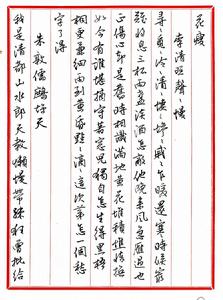 花
李清照聲〻慢
尋〻覓〻冷〻清〻悽〻慘〻戚〻乍暖還寒時候最
難將息三杯兩盞淡酒怎敵他晚來風急雁過也
正傷心卻是舊時相識滿地黃花堆積憔悴損
如今有誰堪摘守著窗兒獨自怎生得黑梧
桐更兼細雨到黃昏點〻滴〻這次第怎一個愁
字了得
朱敦儒鷓鴣天
我是清都山水郎天教懶慢帶疏狂曾批給